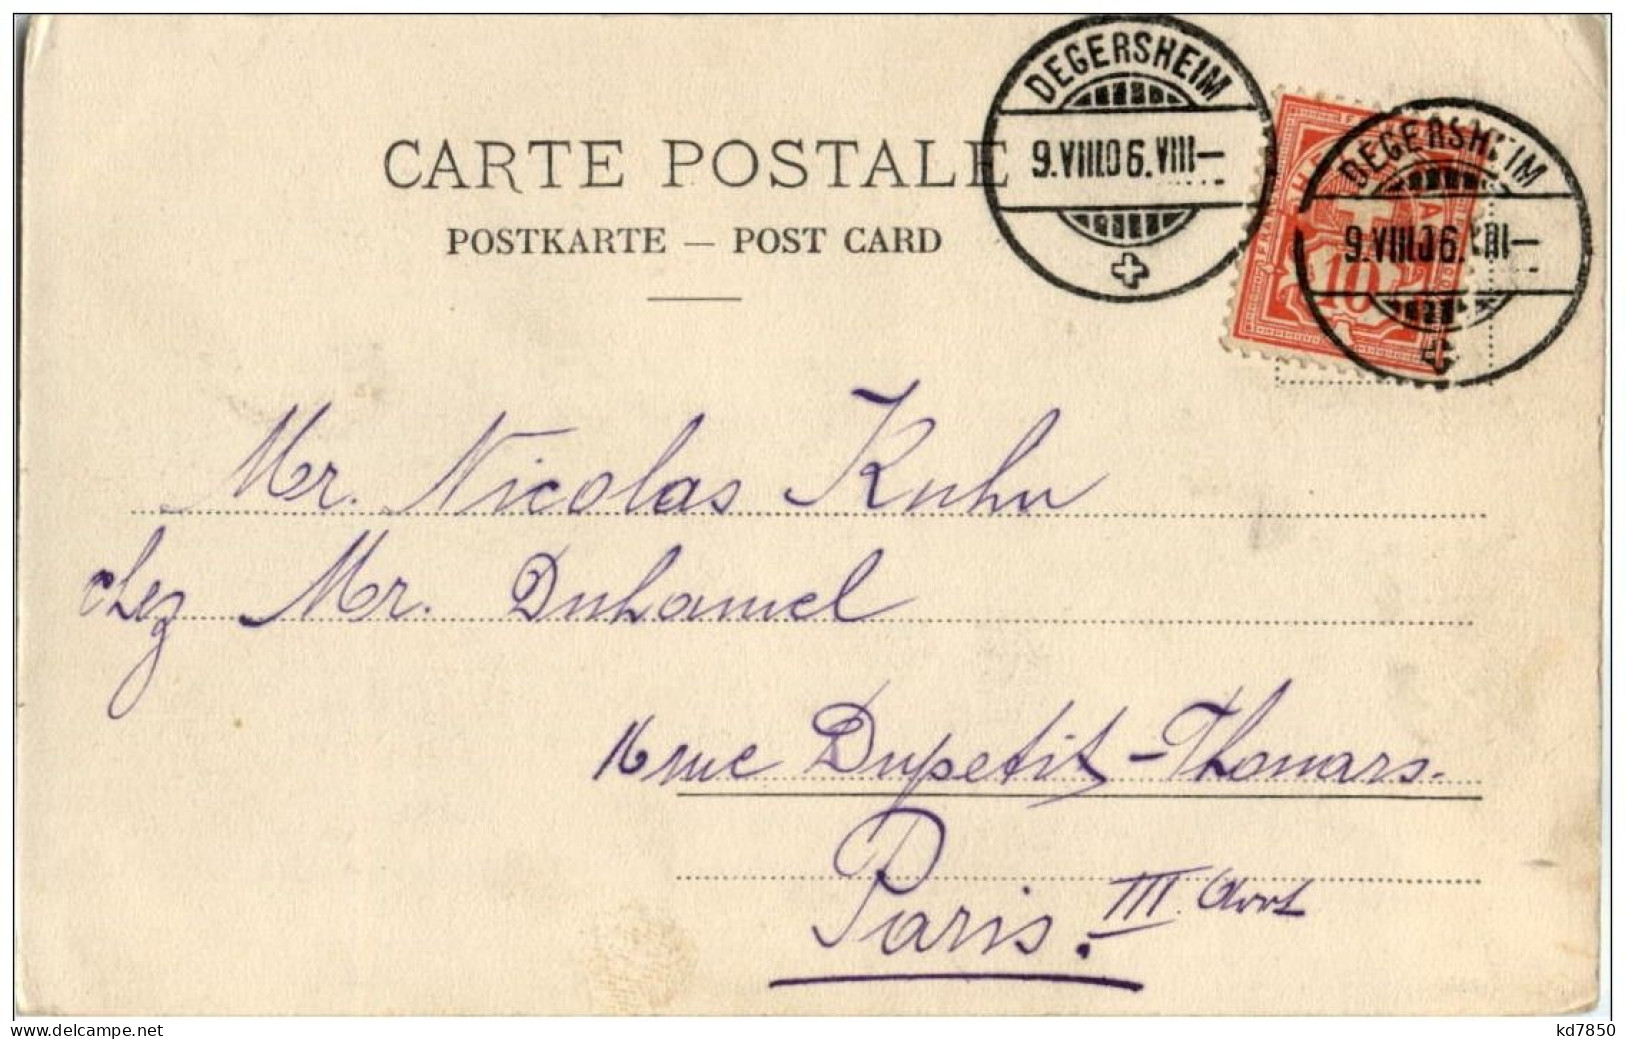 DEGERSHEIM
9.VIII.06.VIII—
DEGERSHEIM
9.VIII.06.VIII—
10
CARTE POSTALE
POSTKARTE — POST CARD
Mr. Nicolas Kuhn
chez Mr. Duhamel
16 rue Dupetit-Thouars.
Paris. III. Arrt
www.delcampe.net
kd7850